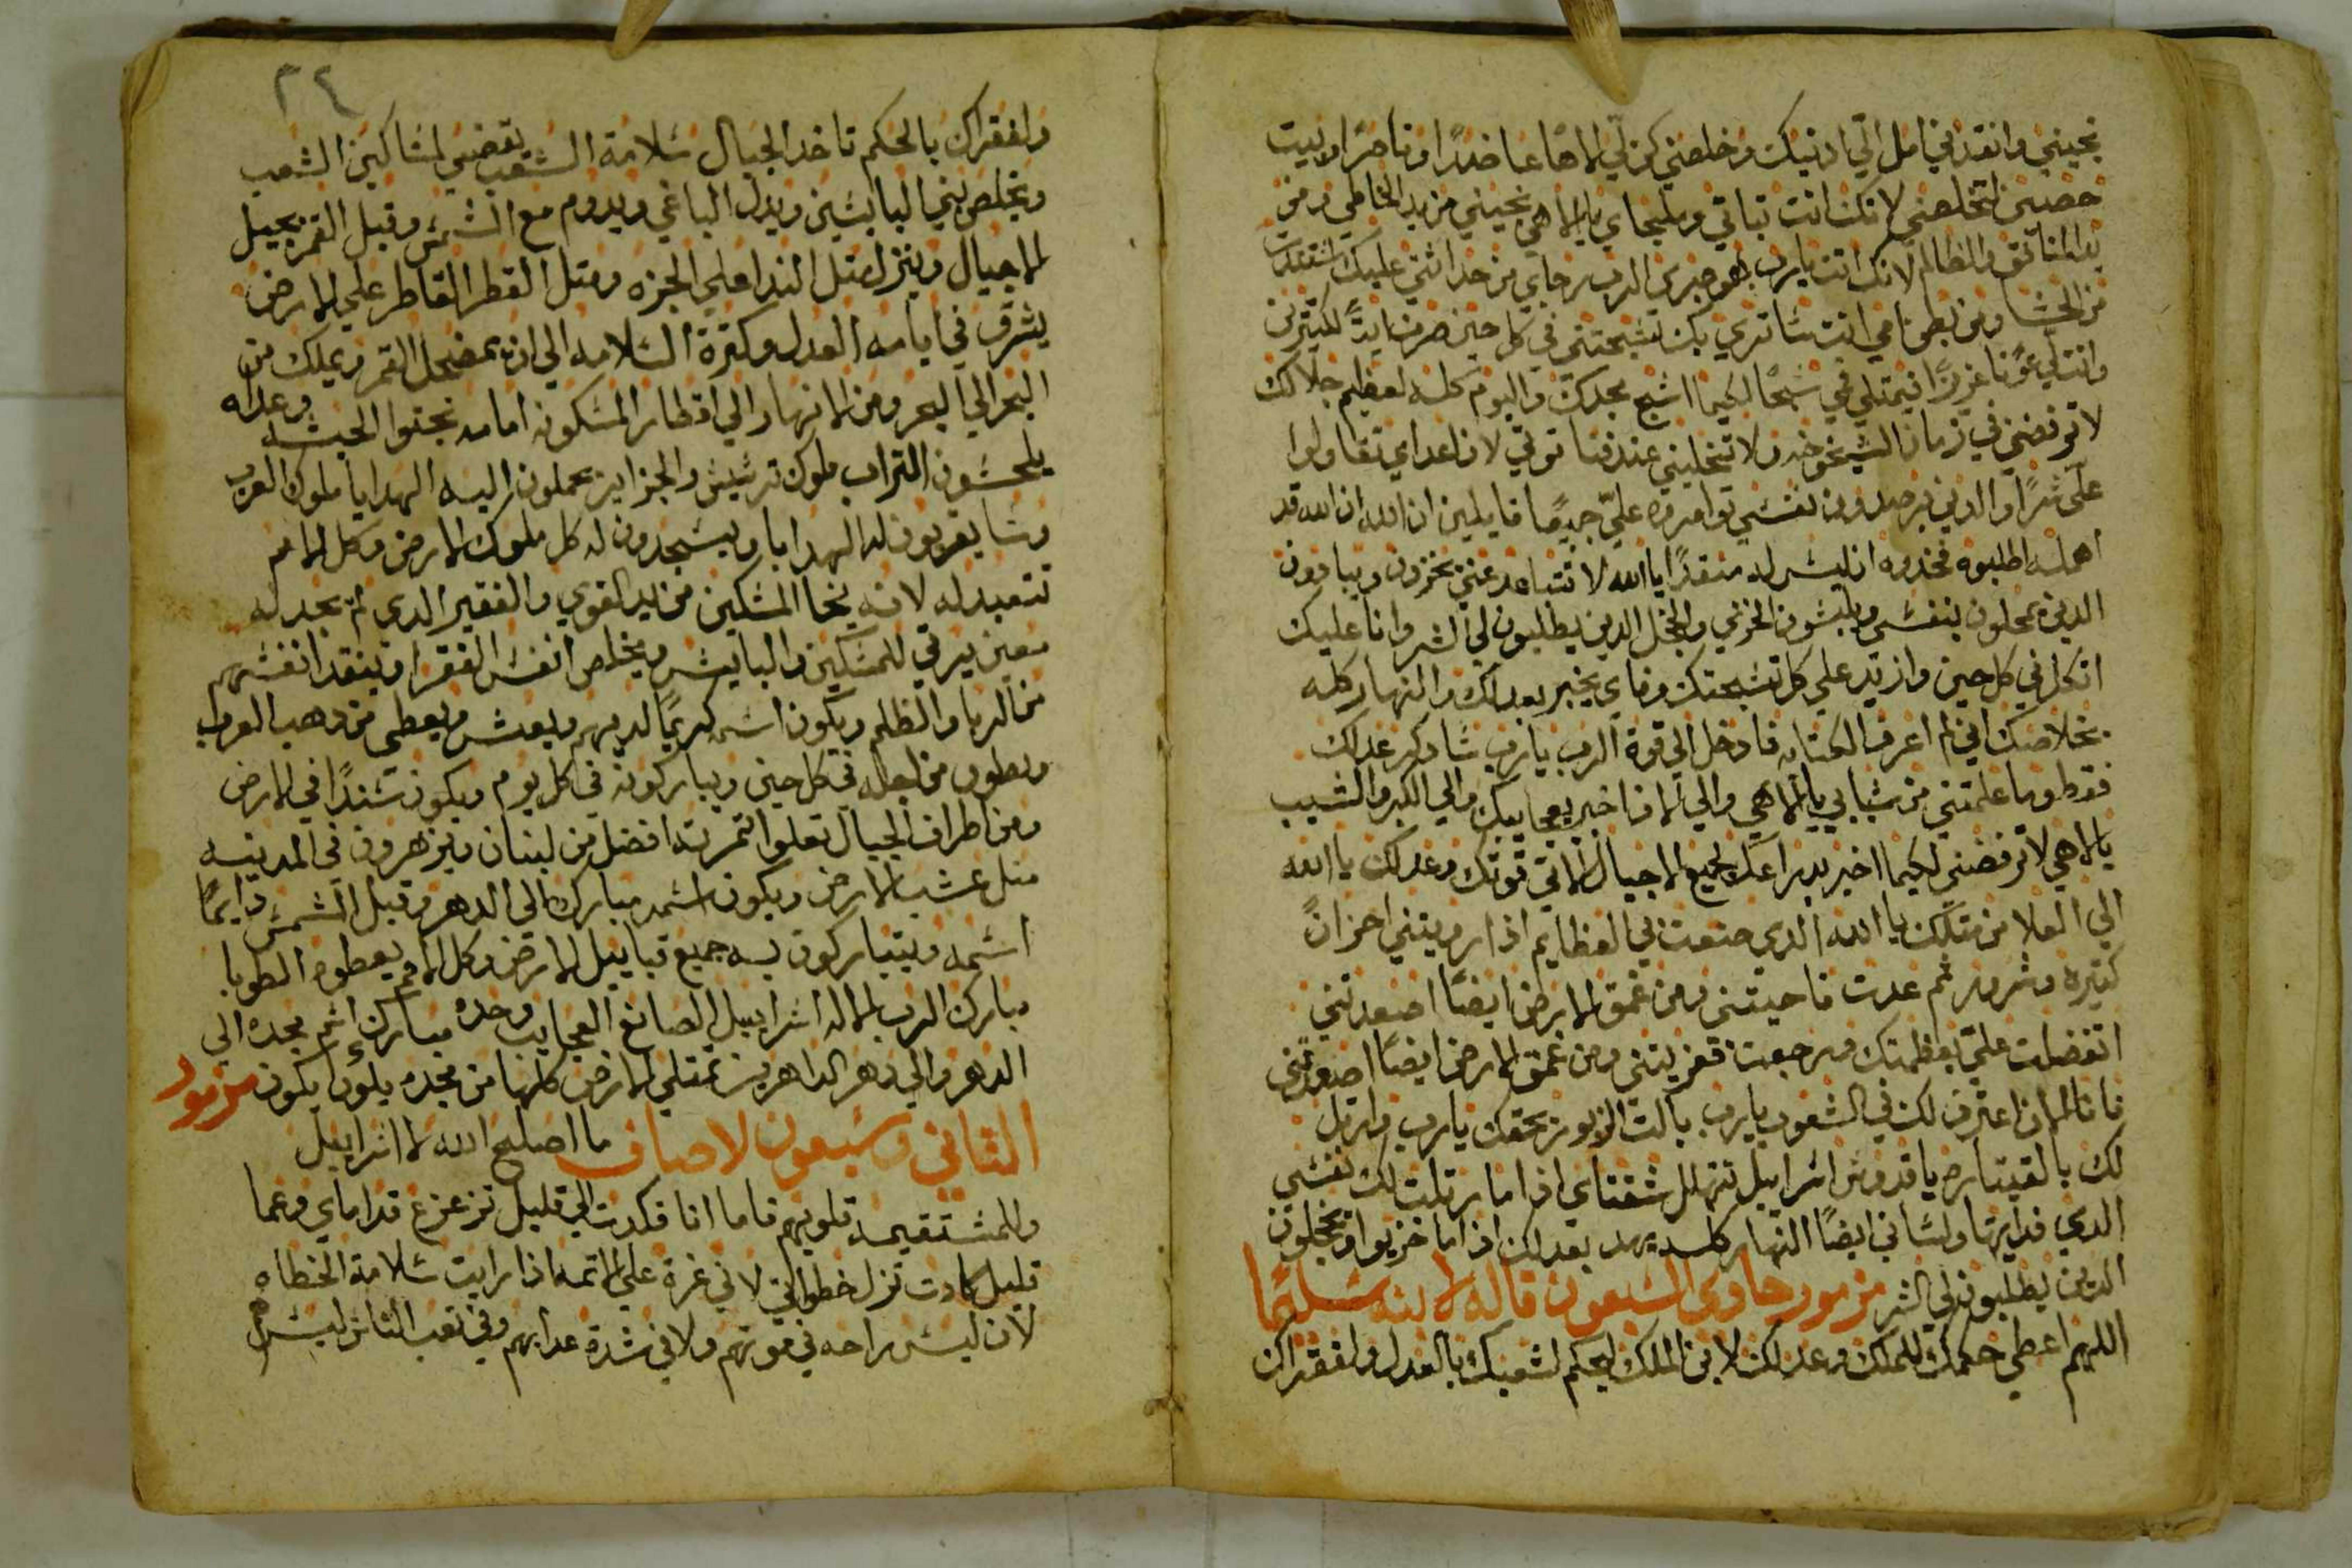 نجيني وانقذني امل الي ادنيك وخلصني كن لي الاهًا عاضدًا وناصرًا وبيت
حصين لتخلصني لانك انت تباتي وملجاي يا الاهي نجيني من يد الخاطي ومن
يد المنافق والظالم لانك انت يارب هو صبري الرب رجاي من حداثتي عليك استندت
من الحشا ومن بطن امي انت ساتري بك تسبحتي في كل حين صرت ايةً لكتيرين
وانت لي عونًا عزيزًا فيمتلي فمي سبحًا لكيما اسبح مجدك واليوم كله لعظيم جلالك
لا ترفضني في زمان الشيخوخه ولا تخليني عند فنا قوتي لان اعداي تقاولوا
علي شرًا والدين يرصدون نفسي توامروه عليّ جميعًا قايلين ان الله ان الله قد
اهمله اطلبوه فخدوه انه ليس له منقدًا يا الله لا تتباعد عني يخزون ويبادون
الدين يمحلون بنفسي ويلبسون الخزي والخجل الدين يطلبون لي الشر وانا عليك
اتكل في كل حين وازيد علي كل تسبحتك وفاي يخبر بعدلك والنهار كله
بخلاصك اني لم اعرف الكتابه فادخل الي قوة الرب يارب سادكر عدلك
فقط وما علمتني من شبابي يا الاهي والي الان اخبر بعجايبك والي الكبر والشيب
يا الاهي لا ترفضني لكيما اخبر بدراعك لجميع الاجيال الاتي قوتك وعدلك يا الله
الي العلا من متلك يا الله الدي صنعت لي العظايم اذ اريتني احزانً
كتيره وشرور ثم عدت فاحييتني ومن عمق الارض ايضًا اصعدتني
اتفضلت عليّ بعظمتك ورجعت فعزيتني ومن عمق الارض ايضًا اصعدتني
فانا الان اعترف لك في الشعوب يارب بالت الزبور بحقك يارب وارتل
لك بالقيتاره يا قدوس اسراييل تتهلل شفتاي اذا ما رتلت لك نفسي
الدي فديتها ولساني ايضًا النهار كله يهد بعدلك اذا ما خزيوا وخجلون
الدين يطلبون لي الشر مزمور حاوي السبعون قاله لابنه سليما
اللهم اعطي حكمك للملك وعدلك لابن الملك ليحكم لشعبك بالعدل ولفقراك
٢٤
ولفقراك بالحكم تاخد الجبال سلامة الشعب يقضي لمساكين الشعب
ويخلص بني البايسين ويدل الباغي ويدوم مع الشمس وقبل القمر بجيل
الاجيال وينزل متل الندا علي الجزه ومتل القطر القاطر علي الارض
يشرق في ايامه العدل وكترة السلامه الي ان يمضحل القمر ويملك من
البحر الي البحر ومن الانهار الي اقطار المسكونه امامه نجتوا الحبشه وعداه
يلحسون التراب ملوك ترشيش والجزاير يحملون اليه الهدايا ملوك العرب
وسبا يقربون له الهدايا ويسجدون له كل ملوك الارض وكل الامم
تتعبد له لانه نجا المسكين من يد القوي والفقير الدي لم يجد له
معين يرتي للمسكين والبايس ويخلص انفس الفقرا وينقد انفسهم
من الربا والظلم ويكون اسمه كريمًا لديهم ويعيش ويعطي من دهب العرب
ويطون من اجله في كل حين ويباركونه في كل يوم ويكون سندًا في الارض
ومن اطراف الجبال تعلوا تمرته افضل من لبنان ويزهرون في المدينه
متل عشب الارض ويكون اسمه مبارك الي الدهر وقبل الشمس دايمًا
اسمه ويتباركون به جميع قبايل الارض وكل الامم يعطوه الطوبا
مبارك الرب الاله اسراييل الصانع العجايب وحده مبارك اسم مجده الي
الدهر والي دهر الداهرين تمتلي الارض كلها من مجده يكون يكون مزمور
التاني وسبعون لاصاف ما اصلح الله لاسراييل
وللمستقيمه قلوبهم فاما انا فكدت الي قليل تزعزع قداماي وعما
قليل كادت تزل خطواتي لاني غرة علي الاتمه اذا رايت سلامة الخطاه
لان ليس راحه في موتهم ولا في شدة عدابهم وفي تعب الناس ليس هم